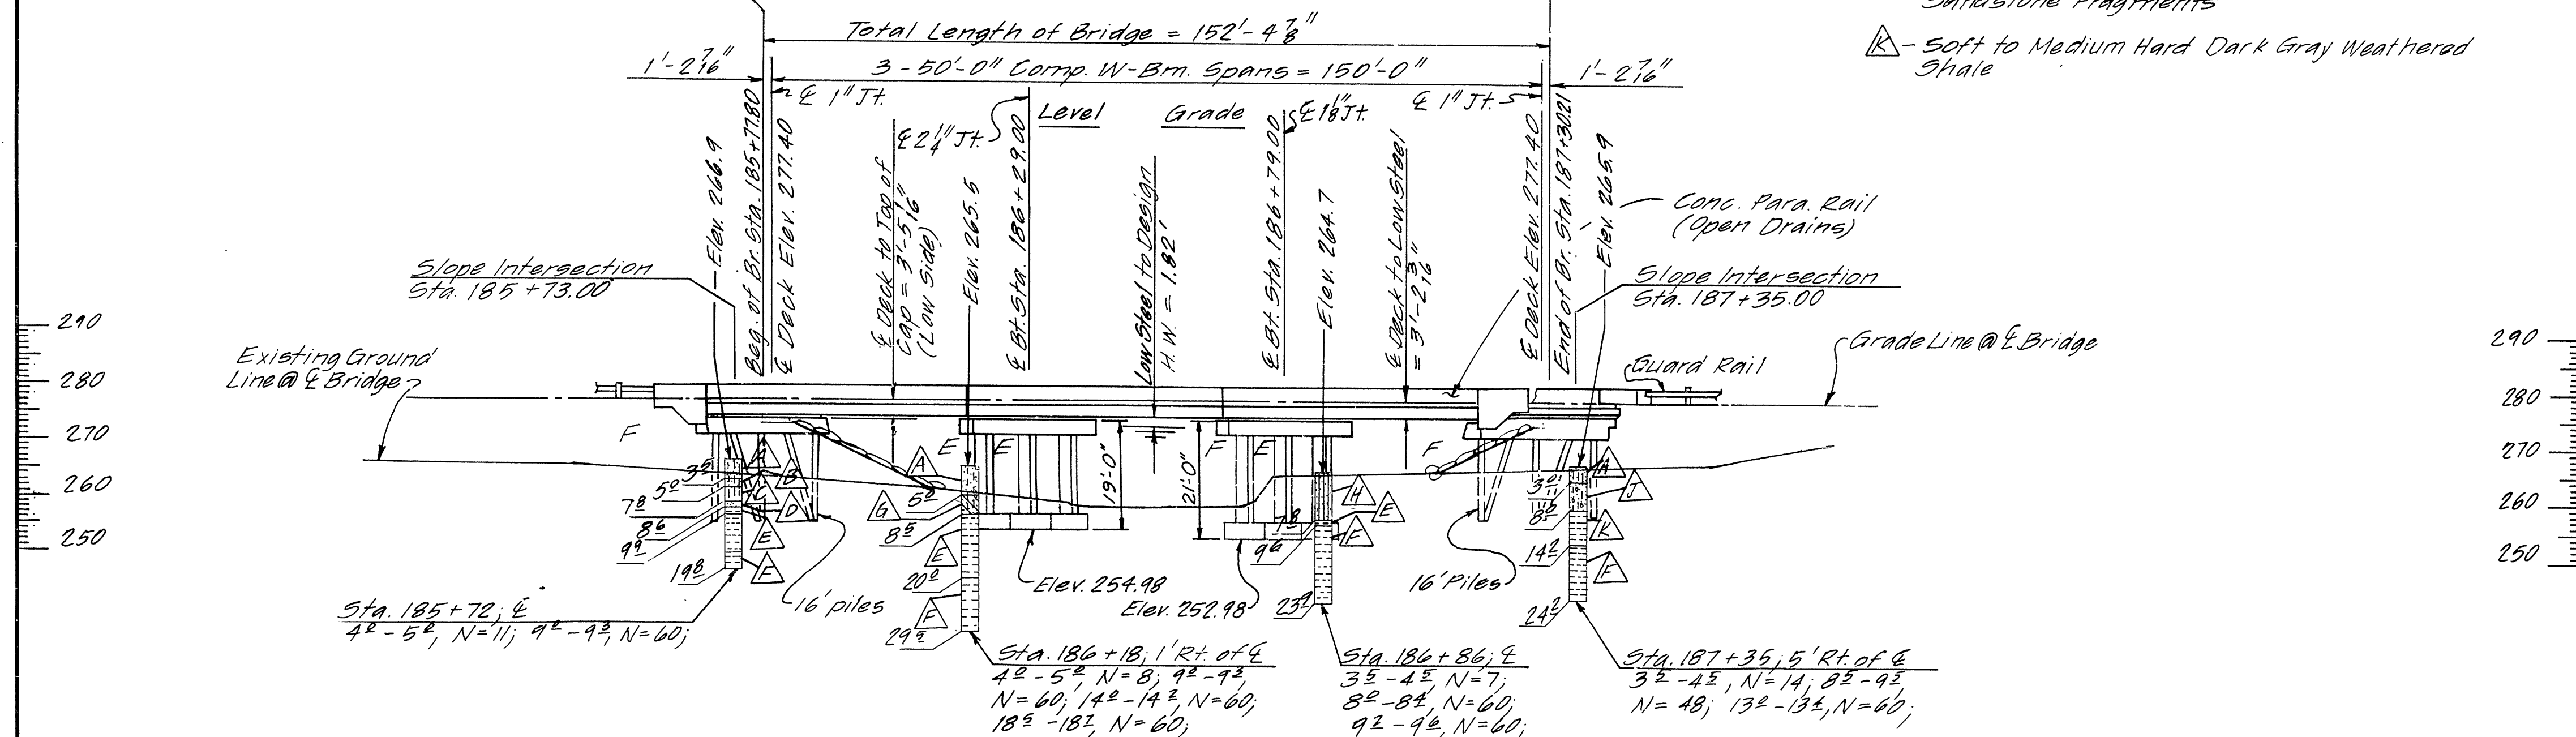 Sandstone Fragments
K - Soft to Medium Hard Dark Gray Weathered
Shale
Total Length of Bridge = 152'-4 7/8"
1'-2 7/16"
3-50'-0" Comp. W-Bm. Spans = 150'-0"
1'-2 7/16"
℄ 1" Jt.
℄ 1" Jt.
℄ 2 1/4" Jt.
Level Grade
℄ 1 1/8" Jt.
Elev. 266.9
Beg. of Br. Sta. 185+77.80
℄ Deck Elev. 277.40
℄ Deck to Top of
Cap = 3'-5 1/16"
(Low Side)
Elev. 265.5
℄ Bt. Sta. 186+29.00
Low Steel to Design
H.W. = 1.82'
℄ Bt. Sta. 186+79.00
Elev. 264.7
℄ Deck to Low Steel
= 3'-2 3/16"
℄ Deck Elev. 277.40
End of Br. Sta. 187+30.21
Elev. 265.9
Conc. Para. Rail
(Open Drains)
Slope Intersection
Sta. 185+73.00
Slope Intersection
Sta. 187+35.00
290
280
270
260
250
290
280
270
260
250
Existing Ground
Line @ ℄ Bridge
Grade Line @ ℄ Bridge
Guard Rail
F
E
E
F
E
F
A
B
C
D
E
F
3⁵
5⁰
7⁸
8⁶
9⁹
19⁸
16' piles
A
G
E
F
5⁰
8⁵
20⁰
29⁵
19'-0"
21'-0"
Elev. 254.98
Elev. 252.98
H
E
F
7⁸
9⁶
23⁹
16' Piles
A
J
K
F
3⁰
8⁵
14²
24²
Sta. 185+72; ℄
4⁰-5⁰, N=11; 9⁰-9³, N=60;
Sta. 186+18; 1' Rt. of ℄
4⁰-5⁰, N=8; 9⁰-9³,
N=60; 14⁰-14², N=60;
18⁵-18⁷, N=60;
Sta. 186+86; ℄
3⁵-4⁵, N=7;
8⁰-8⁴, N=60;
9²-9⁶, N=60;
Sta. 187+35; 5' Rt. of ℄
3⁵-4⁵, N=14; 8⁵-9⁵
N=48; 13⁰-13⁴, N=60;